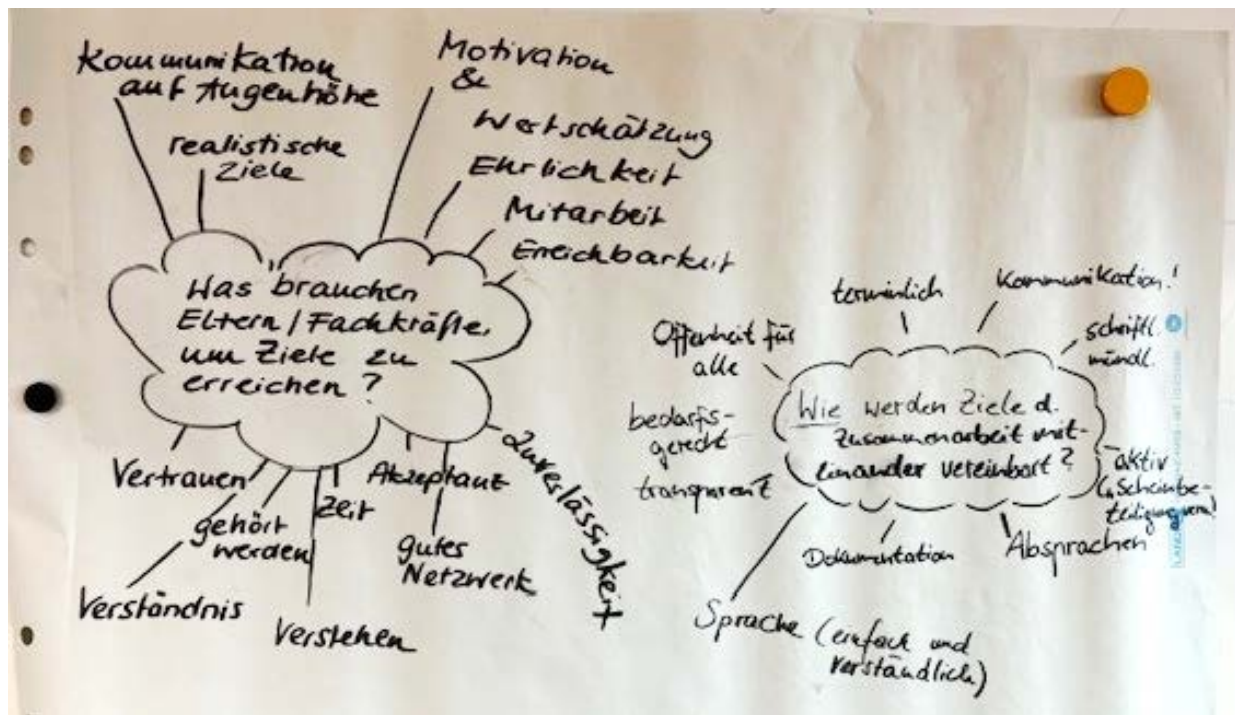 Kommunikation
auf Augenhöhe
realistische
Ziele
Motivation
&
Wertschätzung
Ehrlichkeit
Mitarbeit
Erreichbarkeit
Was brauchen
Eltern/Fachkräfte,
um Ziele zu
erreichen?
Zuverlässigkeit
Akzeptanz
gutes
Netzwerk
Zeit
Verstehen
gehört
werden
Verständnis
Vertrauen
terminlich
Kommunikation!
schriftl.
mündl.
Offenheit für
alle
bedarfs-
gerecht
transparent
Wie werden Ziele d.
Zusammenarbeit mit-
einander vereinbart?
aktiv
Scheinbe-
Absprachen
Dokumentation
Sprache (einfach und
verständlich)